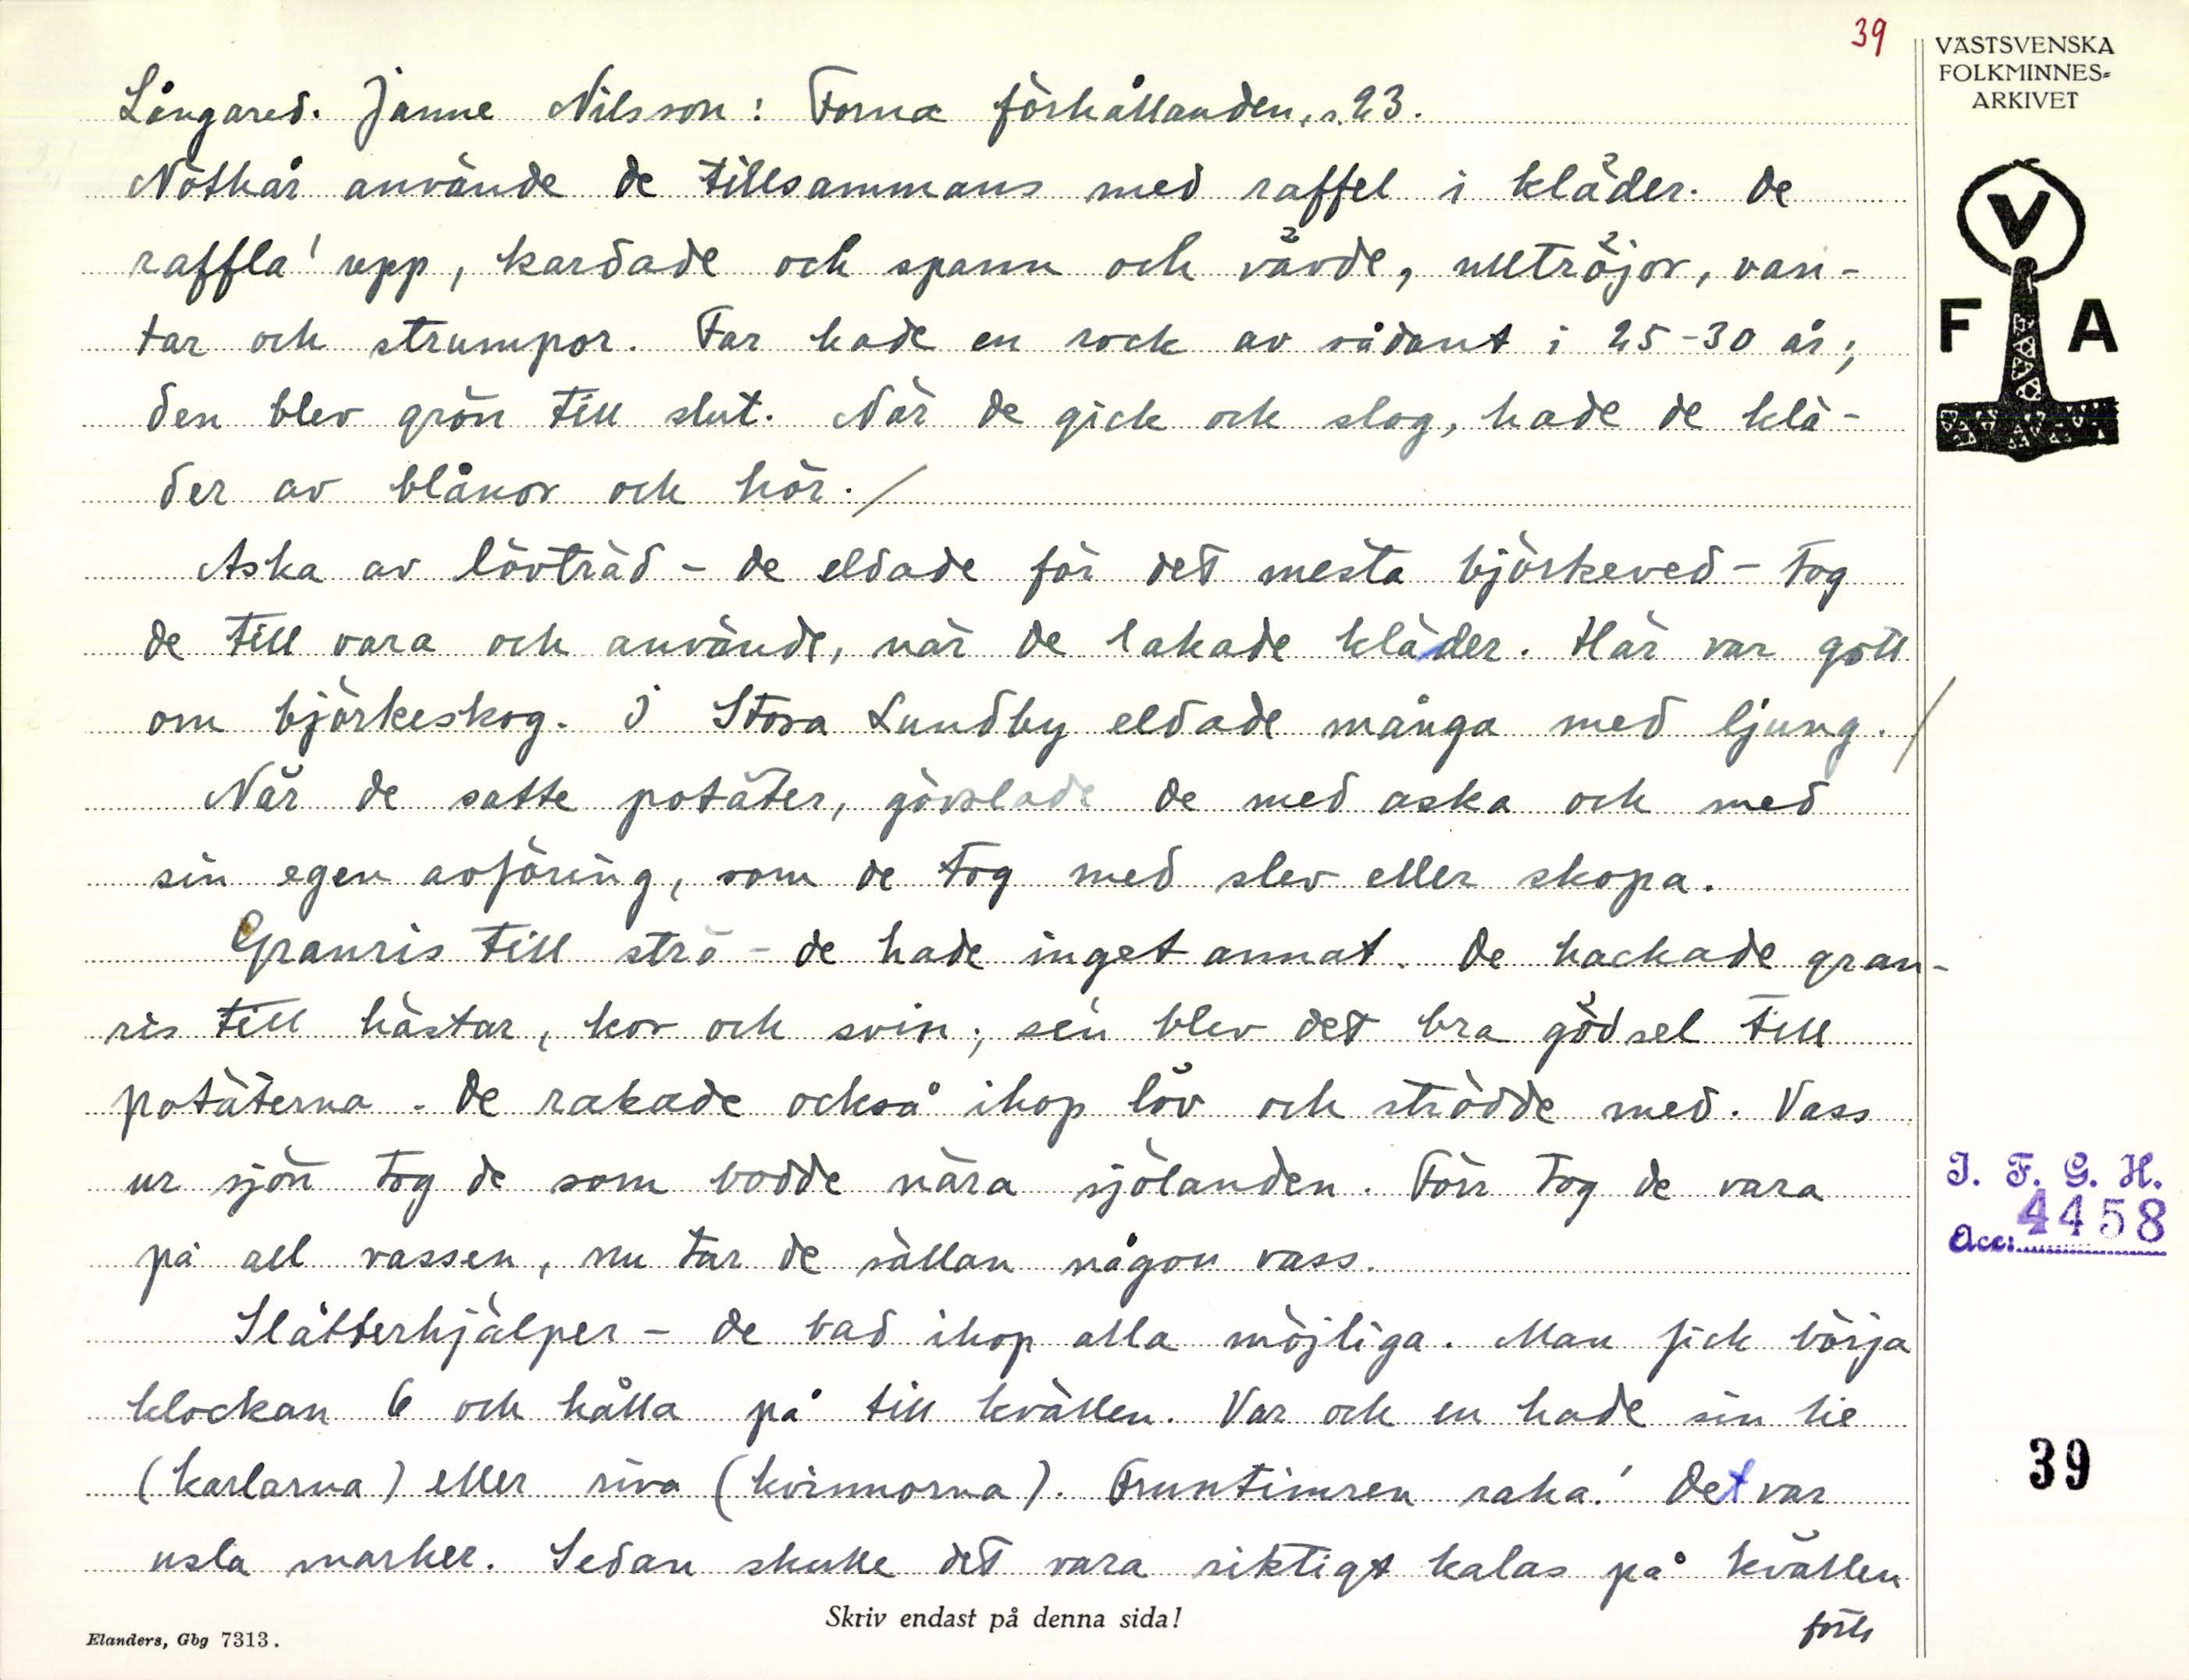 39
VÄSTSVENSKA
FOLKMINNES-
ARKIVET
Långared. Janne Nilsson: Forna förhållanden, s. 23.
Nöthår använde de tillsammans med raffel i kläder. De
raffla' upp, kardade och spann och vävde, ulltröjor, van-
tar och strumpor. Far hade en rock av sådant i 25-30 år;
den blev grön till slut. När de gick och slog, hade de klä-
der av blånor och hör./
Aska av lövträd - de eldade för det mesta björkeved - tog
de till vara och använde, när de lakade kläder. Här var gott
om björkeskog. I Stora Lundby eldade många med ljung./
När de satte potäter, gövslade de med aska och med
sin egen avföring, som de tog med slev eller skopa.
Granris till strö - de hade inget annat. De hackade gran-
ris till hästar, kor och svin; sen blev det bra gödsel till
potäterna. De rakade också ihop löv och strödde med. Vass
ur sjön tog de som bodde nära sjölanden. Förr tog de vara
på all vassen, nu tar de sällan någon vass.
Slåtterhjälper - de bad ihop alla möjliga. Man fick börja
klockan 6 och hålla på till kvällen. Var och en hade sin lie
(karlarna) eller riva (kvinnorna). Fruntimren raka'. Det var
usla marker. Sedan skulle det vara riktigt kalas på kvällen
forts
Skriv endast på denna sida!
Elanders, Gbg 7313.
V
F A
I. F. G. H.
Acc: 4458
39